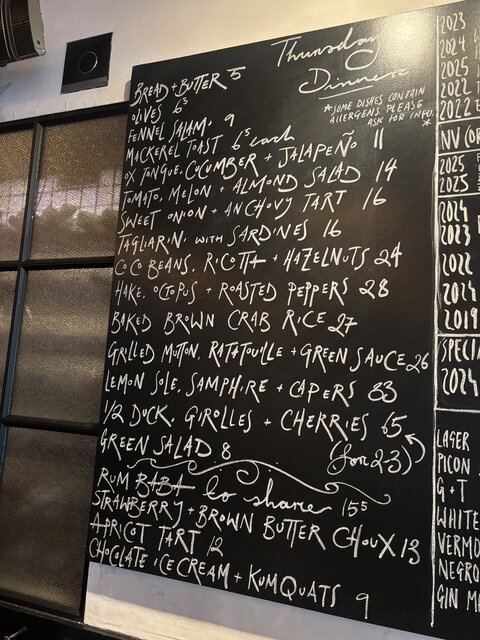 Thursday
Dinner
*SOME DISHES CONTAIN
ALLERGENS PLEASE
ASK FOR INFO.*
BREAD + BUTTER 5
OLIVES 6⁵
FENNEL SALAMI 9
MACKEREL TOAST 6⁵ each
OX TONGUE, CUCUMBER + JALAPEÑO 11
TOMATO, MELON + ALMOND SALAD 14
SWEET ONION + ANCHOVY TART 16
TAGLIARINI WITH SARDINES 16
COCO BEANS, RICOTTA + HAZELNUTS 24
HAKE, OCTOPUS + ROASTED PEPPERS 28
BAKED BROWN CRAB RICE 27
GRILLED MUTTON, RATATOUILLE + GREEN SAUCE 26
LEMON SOLE, SAMPHIRE + CAPERS 33
1/2 DUCK, GIROLLES + CHERRIES 65
(for 2-3)
GREEN SALAD 8
RUM BABA to share 15⁵
STRAWBERRY + BROWN BUTTER CHOUX 13
APRICOT TART 12
CHOCOLATE ICE CREAM + KUMQUATS 9
2023
2024
2025
2022
2022
NV
2025
2025
2024
2023
2022
2024
2019
2024
LAGER
PICON
G+T
WHITE